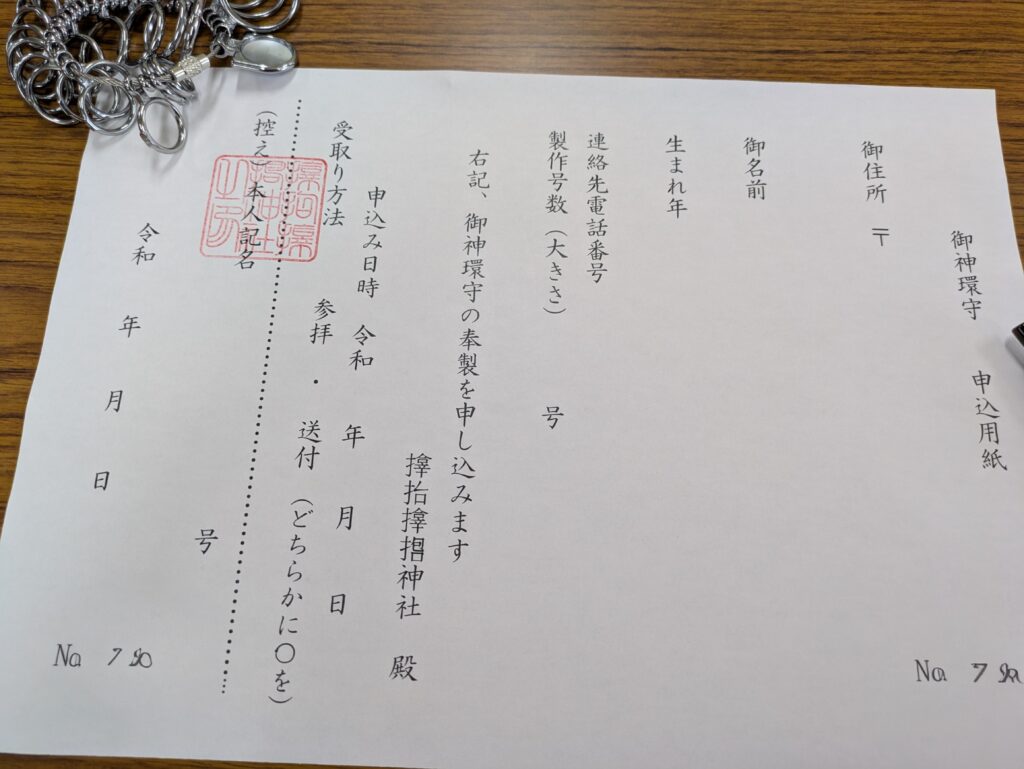 御神環守　申込用紙
御住所　〒
御名前
生まれ年
連絡先電話番号
製作号数（大きさ）　　号
右記、御神環守の奉製を申し込みます
𪮷抬𪮷𪮇神社　殿
申込み日時　令和　　年　　月　　日
受取り方法　　参拝　・　送付　（どちらかに〇を）
（控え）本人記名
号
令和　　年　　月　　日
No. 7
No. 7